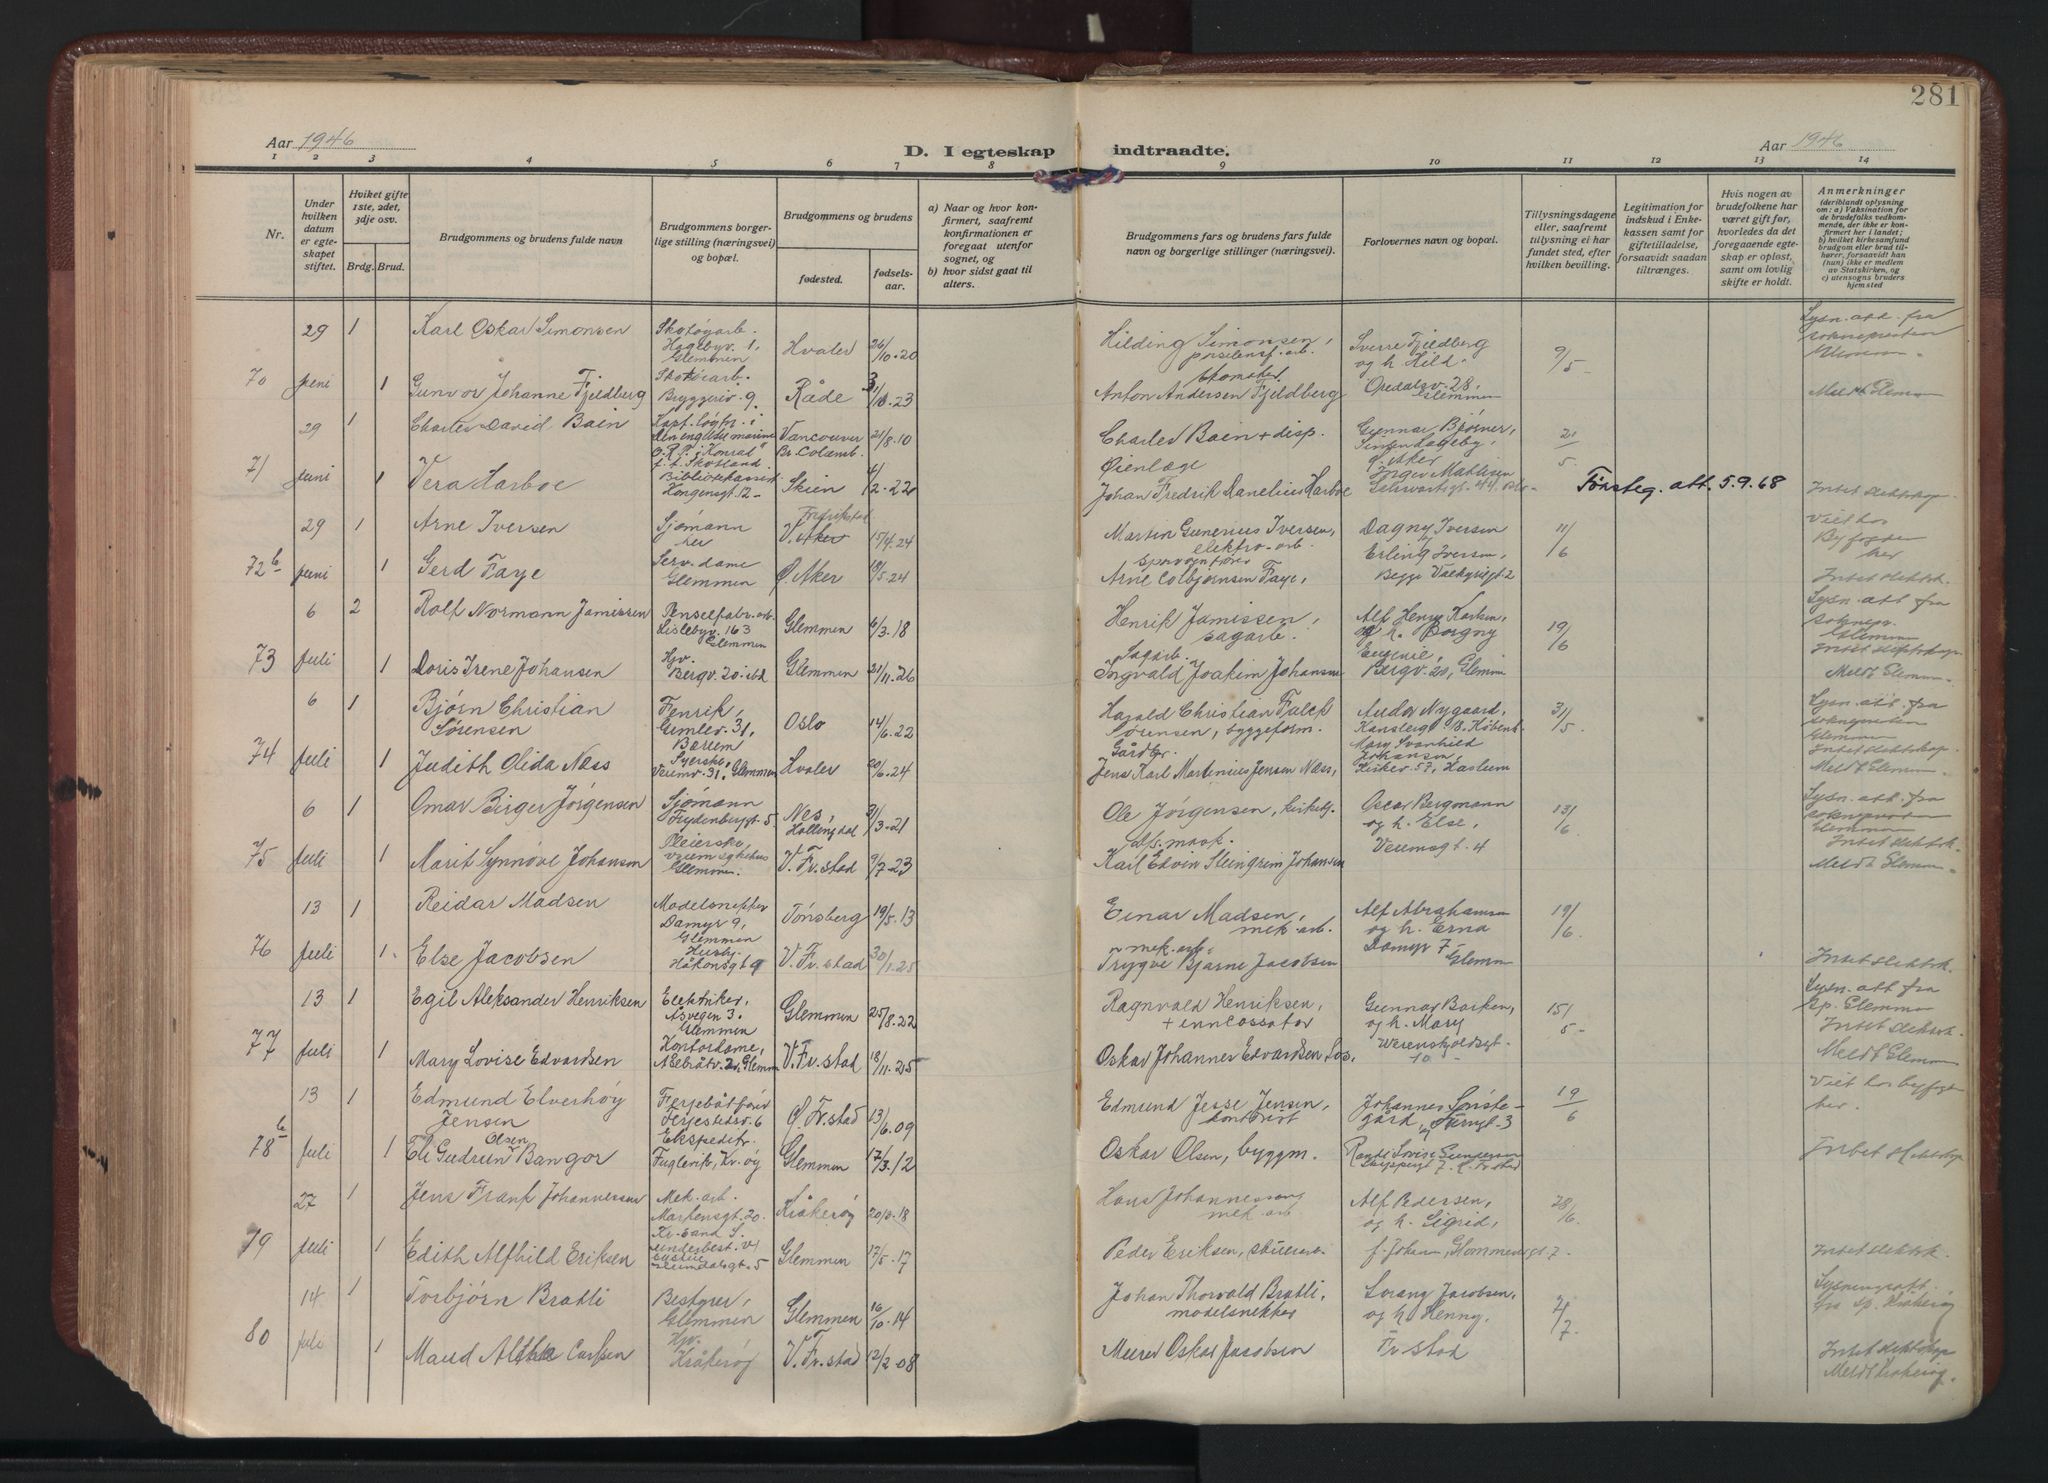 281
Aar 1946
D. I egteskap indtraadte.
Aar 1946
1 2 3 4 5 6 7 8 9 10 11 12 13 14
Nr.
Under hvilken datum er egteskapet stiftet.
Hviket gifte 1ste, 2det, 3dje osv.
Brdg. Brud.
Brudgommens og brudens fulde navn
Brudgommens borgerlige stilling (næringsvei) og bopæl.
Brudgommens og brudens
fødested.
fødselsaar.
a) Naar og hvor konfirmert, saafremt konfirmationen er foregaat utenfor sognet, og
b) hvor sidst gaat til alters.
Brudgommens fars og brudens fars fulde navn og borgerlige stillinger (næringsvei).
Forlovernes navn og bopæl.
Tillysningsdagene eller, saafremt tillysning ei har fundet sted, efter hvilken bevilling.
Legitimation for indskud i Enkekassen samt for giftetilladelse, forsaavidt saadan tiltrænges.
Hvis nogen av brudefolkene har været gift før, hvorledes da det foregaaende egteskap er opløst, samt om lovlig skifte er holdt.
Anmerkninger
(deriblandt oplysning om: a) Vaksination for de brudefolks vedkommende, der ikke er konfirmert her i landet;
b) hvilket kirkesamfund brudgom eller brud tilhører, forsaavidt han (hun) ikke er medlem av Statskirken, og
c) utensogns bruders hjemsted
29 1 Karl Oskar Simonsen Skotøyarb. Hagebyv. 1, Glemmen Hvaler 26/10.20 Hilding Simonsen, porselensf. arb. Sverre Fjeldberg og h. Hild. 9/5 Lysn. att. fra soknepresten Glemmen
70 juni 1 Gunvor Johanne Fjeldberg Skotøiarb. Bryggeriv. 9 Råde 23 Skomaker Anton Andersen Fjeldberg Opedalsv. 28, Glemmen Meldt Glemmen
29 1 Charles David Bain Kapt. løytn. i den engelske marine O.R.P. "Konrad" f.t. Skotland Vancouver Br. Colomb. 21/8.10 Charles Bain + disp. Gunnar Bjørner, Sinsen Hageby, Ø. Aker 21/5.
71 juni 1 Vera Harboe Bibliotekassist. Kongensgt. 12 Skien 4/2.22 Øienlæge Johan Fredrik Danelius Harboe Inger Mathisen Schwartsgt. 44. Oslo Fønsteg. att. 5.9.68
29 1 Arne Iversen Sjømann her Fredrikstad V. Aker 15/4.24 Martin Gunerius Iversen, elektro-arb. Dagny Iversen 11/6 Viet hos Byfogden her
72b juni 1 Gerd Faye Serv. dame Glemmen Ø. Aker 24 Sporvognfører Arne Colbjørnsen Faye, Erling Iversen, Begge Valkyrigt. 2
6 2 Rolf Normann Jamissen Penselfabr. arb. Lislebyv. 163 Glemmen Glemmen 6/3.18 Henrik Jamissen, sagarb. Alf Henry Karlsen og h. Borgny Eugenie, 19/6 Lysn. att. fra soknepr. Glemmen
73 juli 1 Doris Irene Johansen Hjv. Bergv. 20. ibd Glemmen 21/11.26 Sagarb. Ingvald Joakim Johansen Bergv. 20, Glemm Meldt Glemmen
6 1 Bjørn Christian Sørensen Fenrik, Gimlev. 31, Bærum Oslo 14/6.22 Harald Christian Falck Sørensen, byggeform. Auda Nygaard, Kanslerg. 13. Københ. 31/5 Lysn. att. fra soknepresten Glemmen
74 juli 1 Judith Olida Næss Syerske, Veumv. 31, Glemmen Hvaler 20/6.24 Gårdbr. Jens Karl Martinius Jensen Næss, Mary Svanhild Johansen, Kirkev. 57, Haslum Meldt Glemmen
6 1 Omar Birger Jørgensen Sjømann Frydenbergt. 5 Nes, Hallingdal 31/3.21 Ole Jørgensen, kirketj. Oscar Bergmann og h. Else, Veumsgt. 4 13/6 Lysn. att. fra sokneprsten Glemmen
75 juli 1 Marit Synnøve Johansen Pleierske Veum sykehus Glemmen. V. Fr. stad 9/7.23 Karl Edvin Steingrim Johansen Meldt Glemmen
13 1 Reidar Madsen Modelsnekker Damyr 9, Glemmen Tønsberg 19/5.13 Einar Madsen, mek. arb. Alf Abrahamsen og h. Erna Damyr 7 - Glemm 19/6.
76 juli 1 Else Jacobsen Husbj. Håkonsgt. 9 V. Fr. stad 30/1.25 mek. arb. Trygve Bjarne Jacobsen
13 1 Egil Aleksander Henriksen Elektriker, Åsvegen 3. Glemmen Glemmen 25/8.22 Ragnvald Henriksen, + innkassator Gunnar Barken, og h. Mary Werenskioldsgt. 10 15/5 Lysn. att. fra sp. Glemmen
77 juli 1 Mary Lovise Edvardsen Kontordame, Glemm V. Fr. stad 18/11.25 Oskar Johannes Edvardsen Los. Meldt Glemmen
13 1 Edmund Elverhøy Jensen Ferjebåtfører Ferjestedsv. 6 Ø. Fr. stad 13/6.09 Edmund Jesse Jensen, kontorist Johannes Sørstegård, Færgt. 3 19/6 Viet hos byfogt her.
78b juli 1 Eli Gudrun Olsen Bangor Ekspeditr. Fuglevik, Kr.øy Glemmen 17/3.12 Oskar Olsen, byggm. Randi Lovise Gundersen
27 1 Jens Frank Johannessen Mek. arb. Mortensgt. 20. Kr. sand S. Kråkerøy 18 Hans Johannessen mek. arb Alf Pedersen, og h. Sigrid, 28/6.
79 juli 1 Edith Alfhild Eriksen Glemmen 17/5.17 Peder Eriksen, f. Johans, Glommensgt 7.
14 1 Torbjørn Bratli Bestyrer, Glemmen Glemmen 16/10.14 Johan Thorvald Bratli, modelsnekker Jacobsen, og h. Henny. 2/7. Lysningsatt. fra sp. Kråkerøy
80 juli 1 Maud Althea Carlsen Hjv. Kråkerøy V. Fr. stad 12/2.08 Meier Oskar Jacobsen Fr. stad Meldt Kråkerøy.